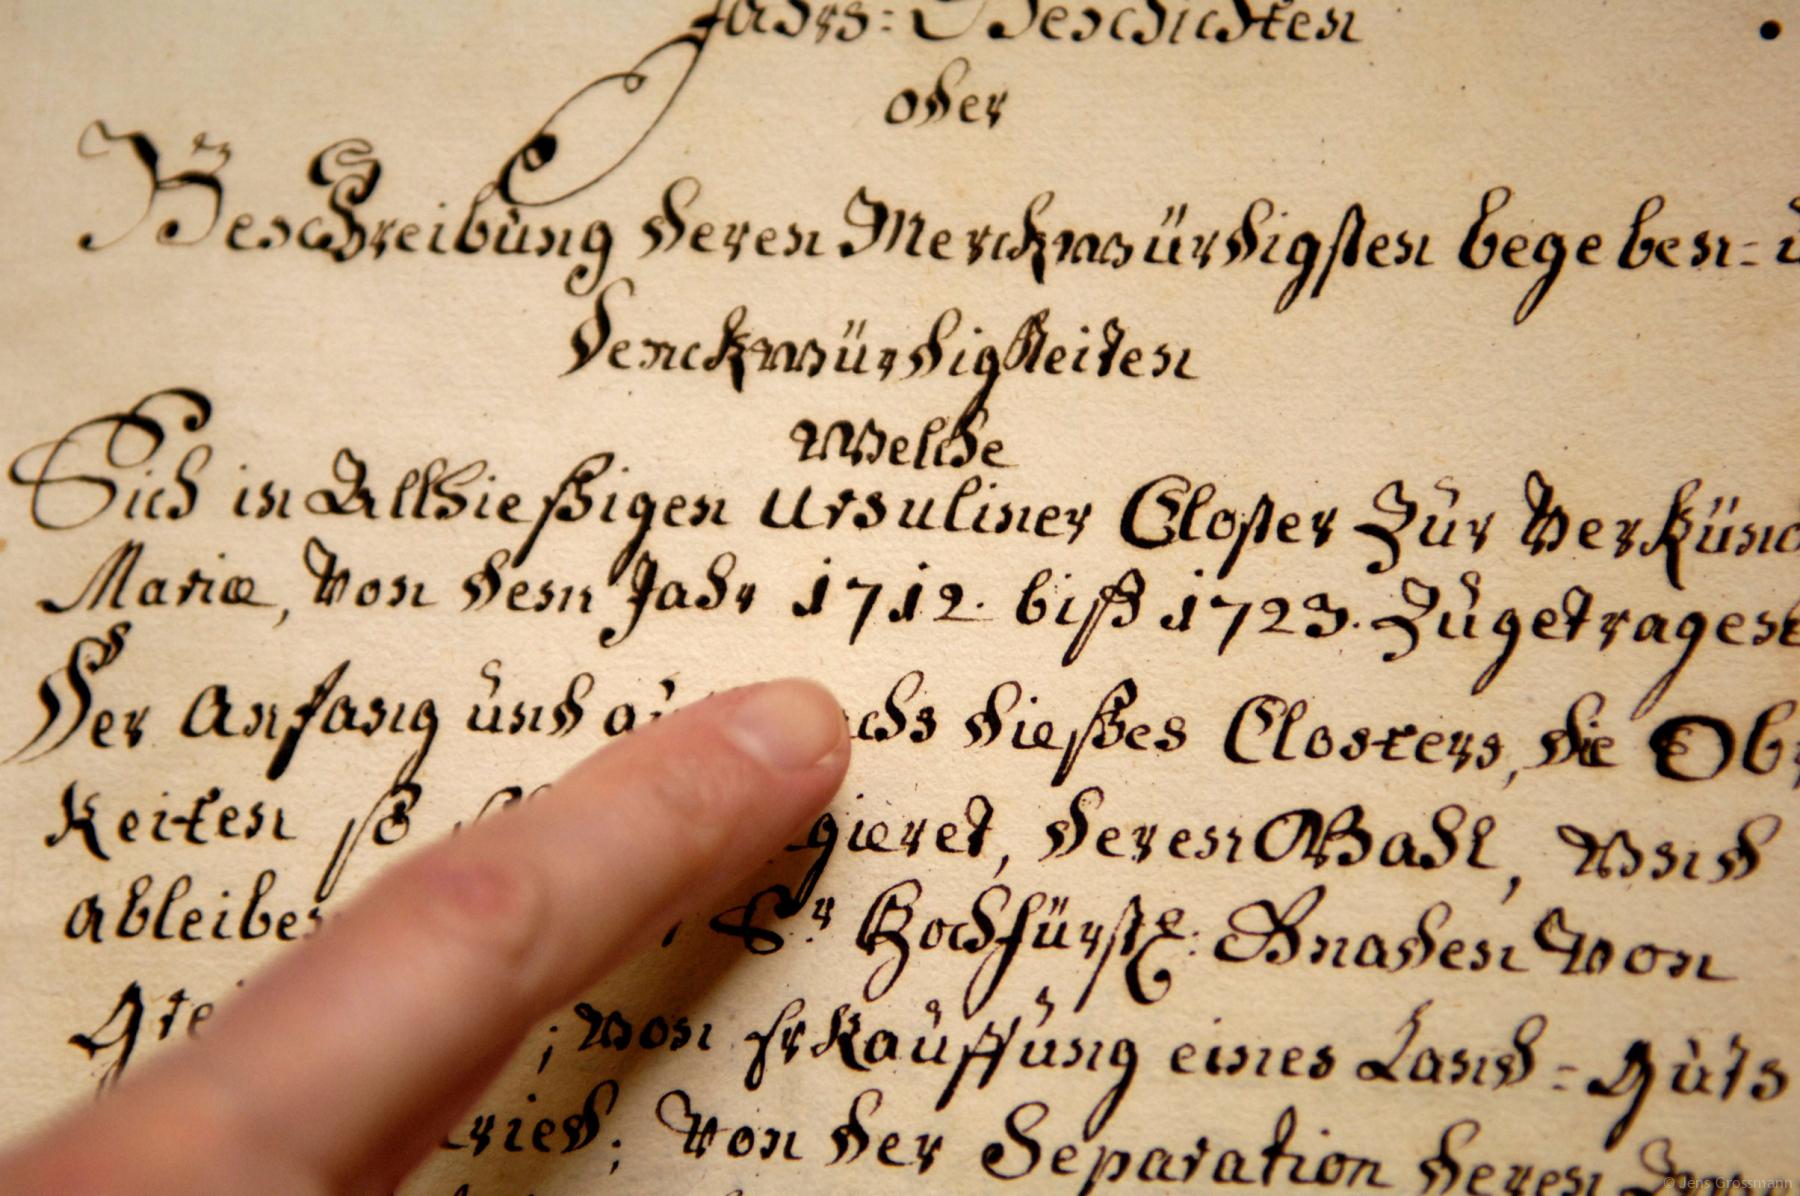 Jahrs: Geschichten
oder
Beschreibung deren Merckwürdigsten begeben=
denckwürdigkeiten
Welche
Sich in Allhießigen Ursuliner Closter Zur Verkünd
Mariæ, Von dem Jahr 1712. biß 1723. Zugetragen
Der Anfang und dießes Closters, die Ob
Keiten so gieret, deren Wahl, und
ableiben Sr Hochfürstl: Gnaden Von
; von Erkauffung eines Land=guts
; Von der Separation deren
© Jens Grossmann